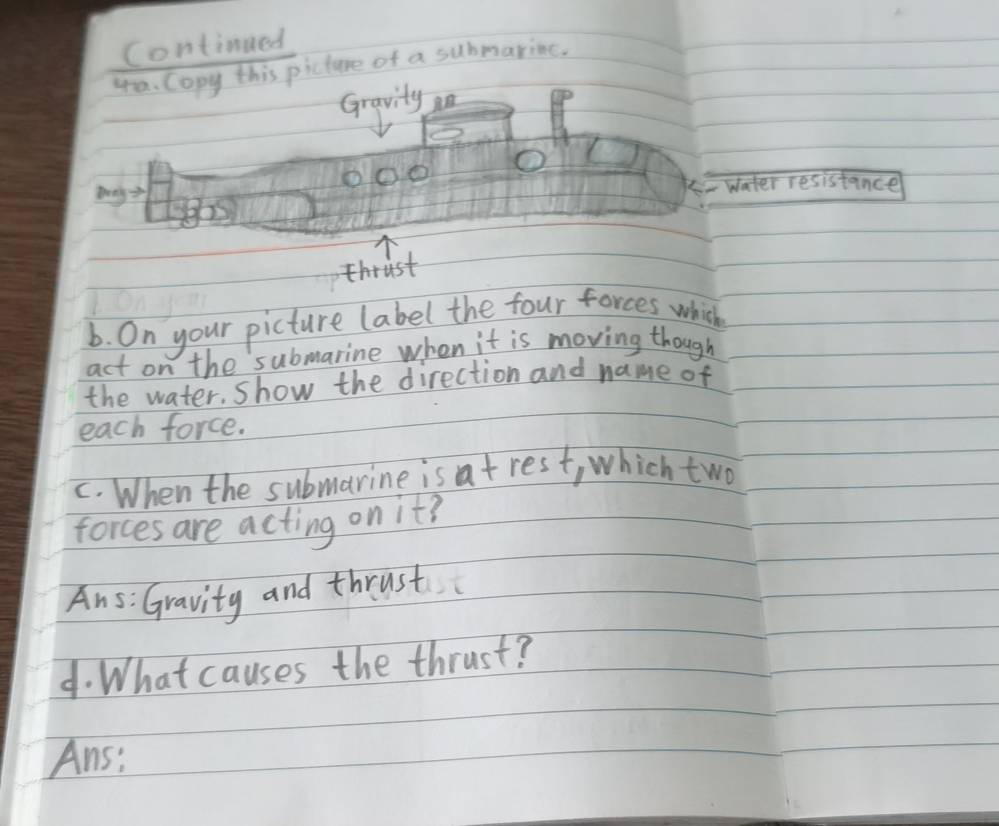 Continued
4a. Copy this picture of a submarine.
Gravity
Drag
Water resistance
thrust
b. On your picture label the four forces which
act on the submarine when it is moving though
the water. Show the direction and name of
each force.
c. When the submarine is at rest, which two
forces are acting on it?
Ans: Gravity and thrust
d. What causes the thrust?
Ans: